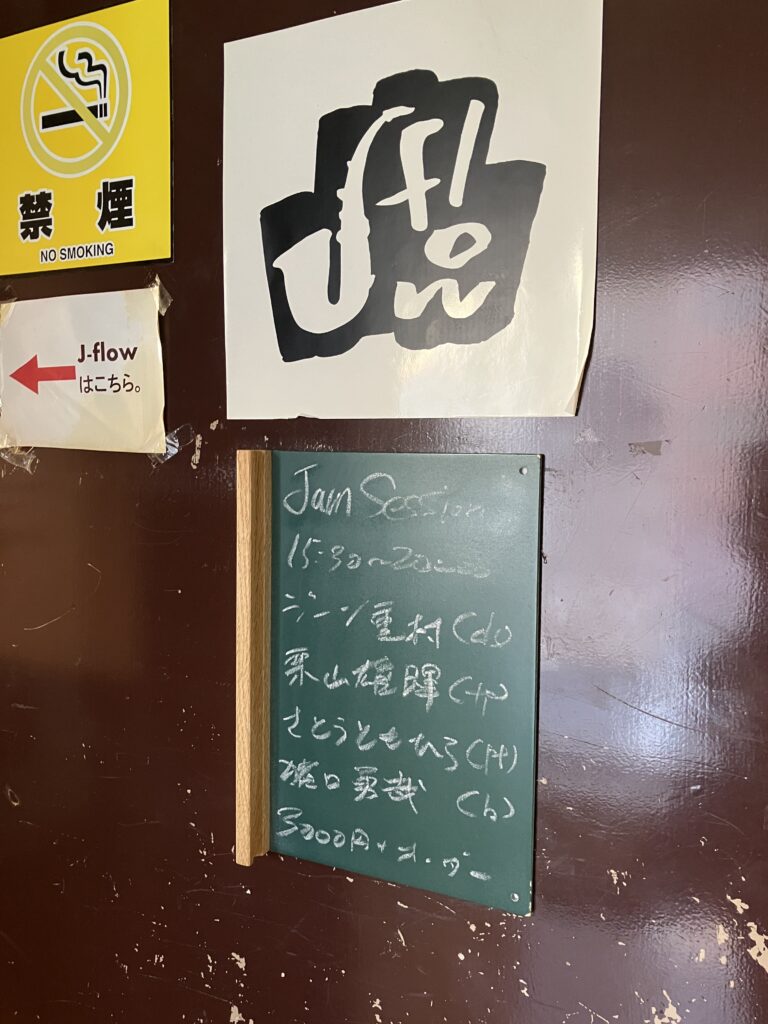 禁煙
NO SMOKING
J-flow
はこちら。
J flow
Jam Session
15:30~20:00
ジーン重村(ds)
栗山雄暉(tp)
さとうともひろ(pf)
堀口勇哉 (b)
3000円+オーダー